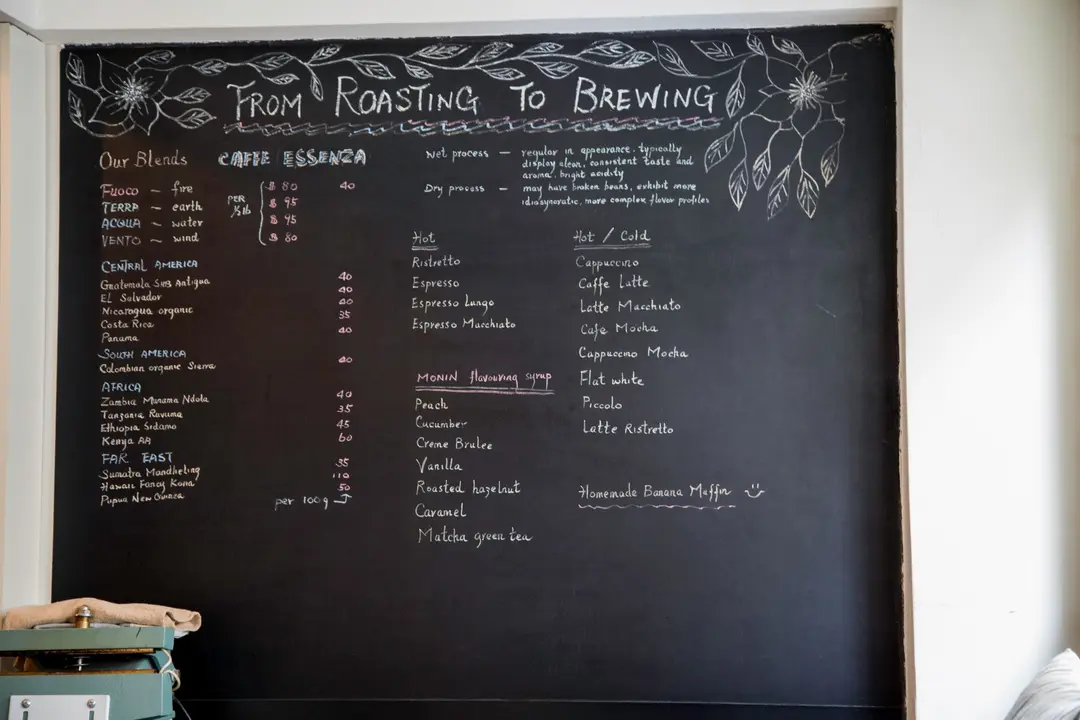 FROM ROASTING TO BREWING
Our Blends CAFFE ESSENZA
FUOCO ~ fire PER ½lb $ 80 40
TERRA ~ earth $ 95
ACQUA ~ water $ 45
VENTO ~ wind $ 80
CENTRAL AMERICA
Guatemala SHB Antigua 40
EL Salvador 40
Nicaragua organic 40
Costa Rica 35
Panama 40
SOUTH AMERICA
Colombian organic Sierra 40
AFRICA
Zambia Munama Ndola 40
Tanzania Ruvuma 35
Ethiopia Sidamo 45
Kenya AA 60
FAR EAST
Sumatra Mandheling 35
Hawaii Fancy Kona 110
Papua New Guinea 50
per 100g
Wet process — regular in appearance, typically
display clean, consistent taste and
aroma, bright acidity
Dry process — may have broken beans, exhibit more
idiosyncratic, more complex flavor profiles
Hot
Ristretto
Espresso
Espresso Lungo
Espresso Macchiato
MONIN flavouring syrup
Peach
Cucumber
Creme Brulee
Vanilla
Roasted hazelnut
Caramel
Matcha green tea
Hot / Cold
Cappuccino
Caffe Latte
Latte Macchiato
Cafe Mocha
Cappuccino Mocha
Flat white
Piccolo
Latte Ristretto
Homemade Banana Muffin